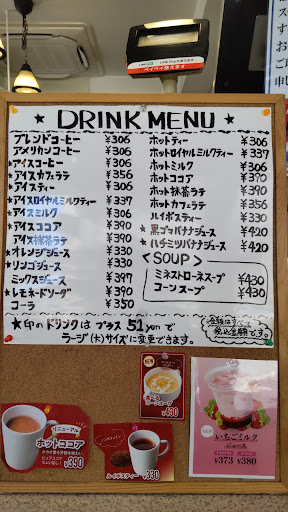 ペイペイ使えます
★ DRINK MENU ★
ブレンドコーヒー ¥306
アメリカンコーヒー ¥306
★アイスコーヒー ¥306
アイスカフェラテ ¥356
アイスティー ¥306
★アイスロイヤルミルクティー ¥337
★アイスミルク ¥306
★アイスココア ¥390
アイス抹茶ラテ ¥390
★オレンジジュース ¥330
★リンゴジュース ¥330
ミックスジュース
★レモネードソーダ ¥390
コーラ ¥350
ホットティー ¥306
ホットロイヤルミルクティー ¥337
ホットミルク ¥306
ホットココア ¥390
ホット抹茶ラテ ¥390
ホットカフェラテ ¥356
ルイボスティー ¥330
★黒ゴマバナナジュース ¥420
★ハチミツバナナジュース ¥420
<SOUP>
ミネストローネスープ ¥430
コーンスープ ¥430
★印のドリンクは プラス 52yenで
ラージ(大)サイズに変更できます。
金額はすべて
税込金額です。
コーンスープ
¥430
リニューアル
ホットココア
¥390
ノンカフェイン
ルイボスティー ¥330
NEW
いちごミルク
ジュース
¥373 ¥380